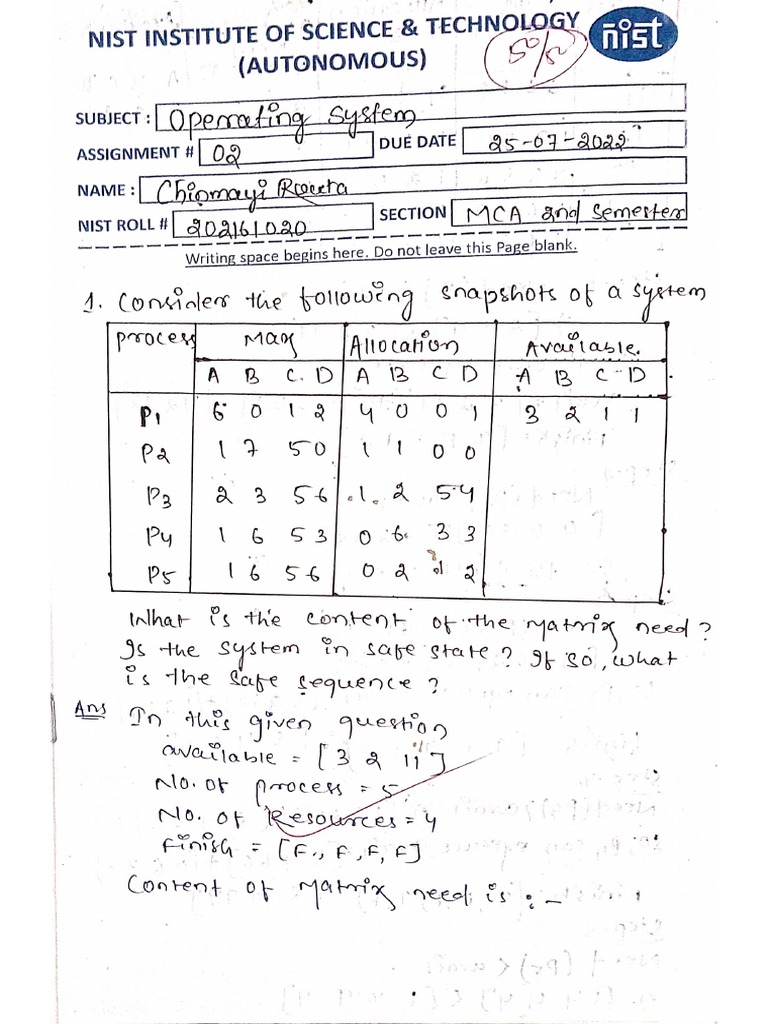 NIST INSTITUTE OF SCIENCE & TECHNOLOGY
(AUTONOMOUS)
50/50
nist
SUBJECT : Operating System
ASSIGNMENT # 02 DUE DATE 25-07-2022
NAME : Chinmayi
NIST ROLL # 202161020 SECTION MCA 2nd Semester
Writing space begins here. Do not leave this Page blank.
1. Consider the following snapshots of a system
Process Max Allocation Available.
A B C. D A B C D A B C D
P1 6 0 1 2 4 0 0 1 3 2 1 1
P2 1 7 5 0 1 1 0 0
P3 2 3 5 6 1 2 5 4
P4 1 6 5 3 0 6 3 3
P5 1 6 5 6 0 2 1 2
What is the content of the matrix need?
Is the system in safe state? If so, what
is the safe sequence?
Ans In this given question
available = [3 2 1 1]
No. of process = 5
No. of Resources = 4
Finish = [F., F, F, F]
Content of matrix need is : -